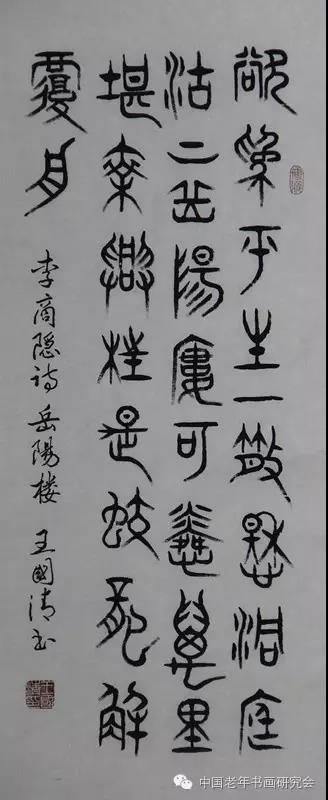 欲為平生一散愁洞庭
湖上岳陽樓可憐萬里
堪乘興枉是蛟龍解
覆舟
李商隐诗岳陽楼 王國清书
中国老年书画研究会